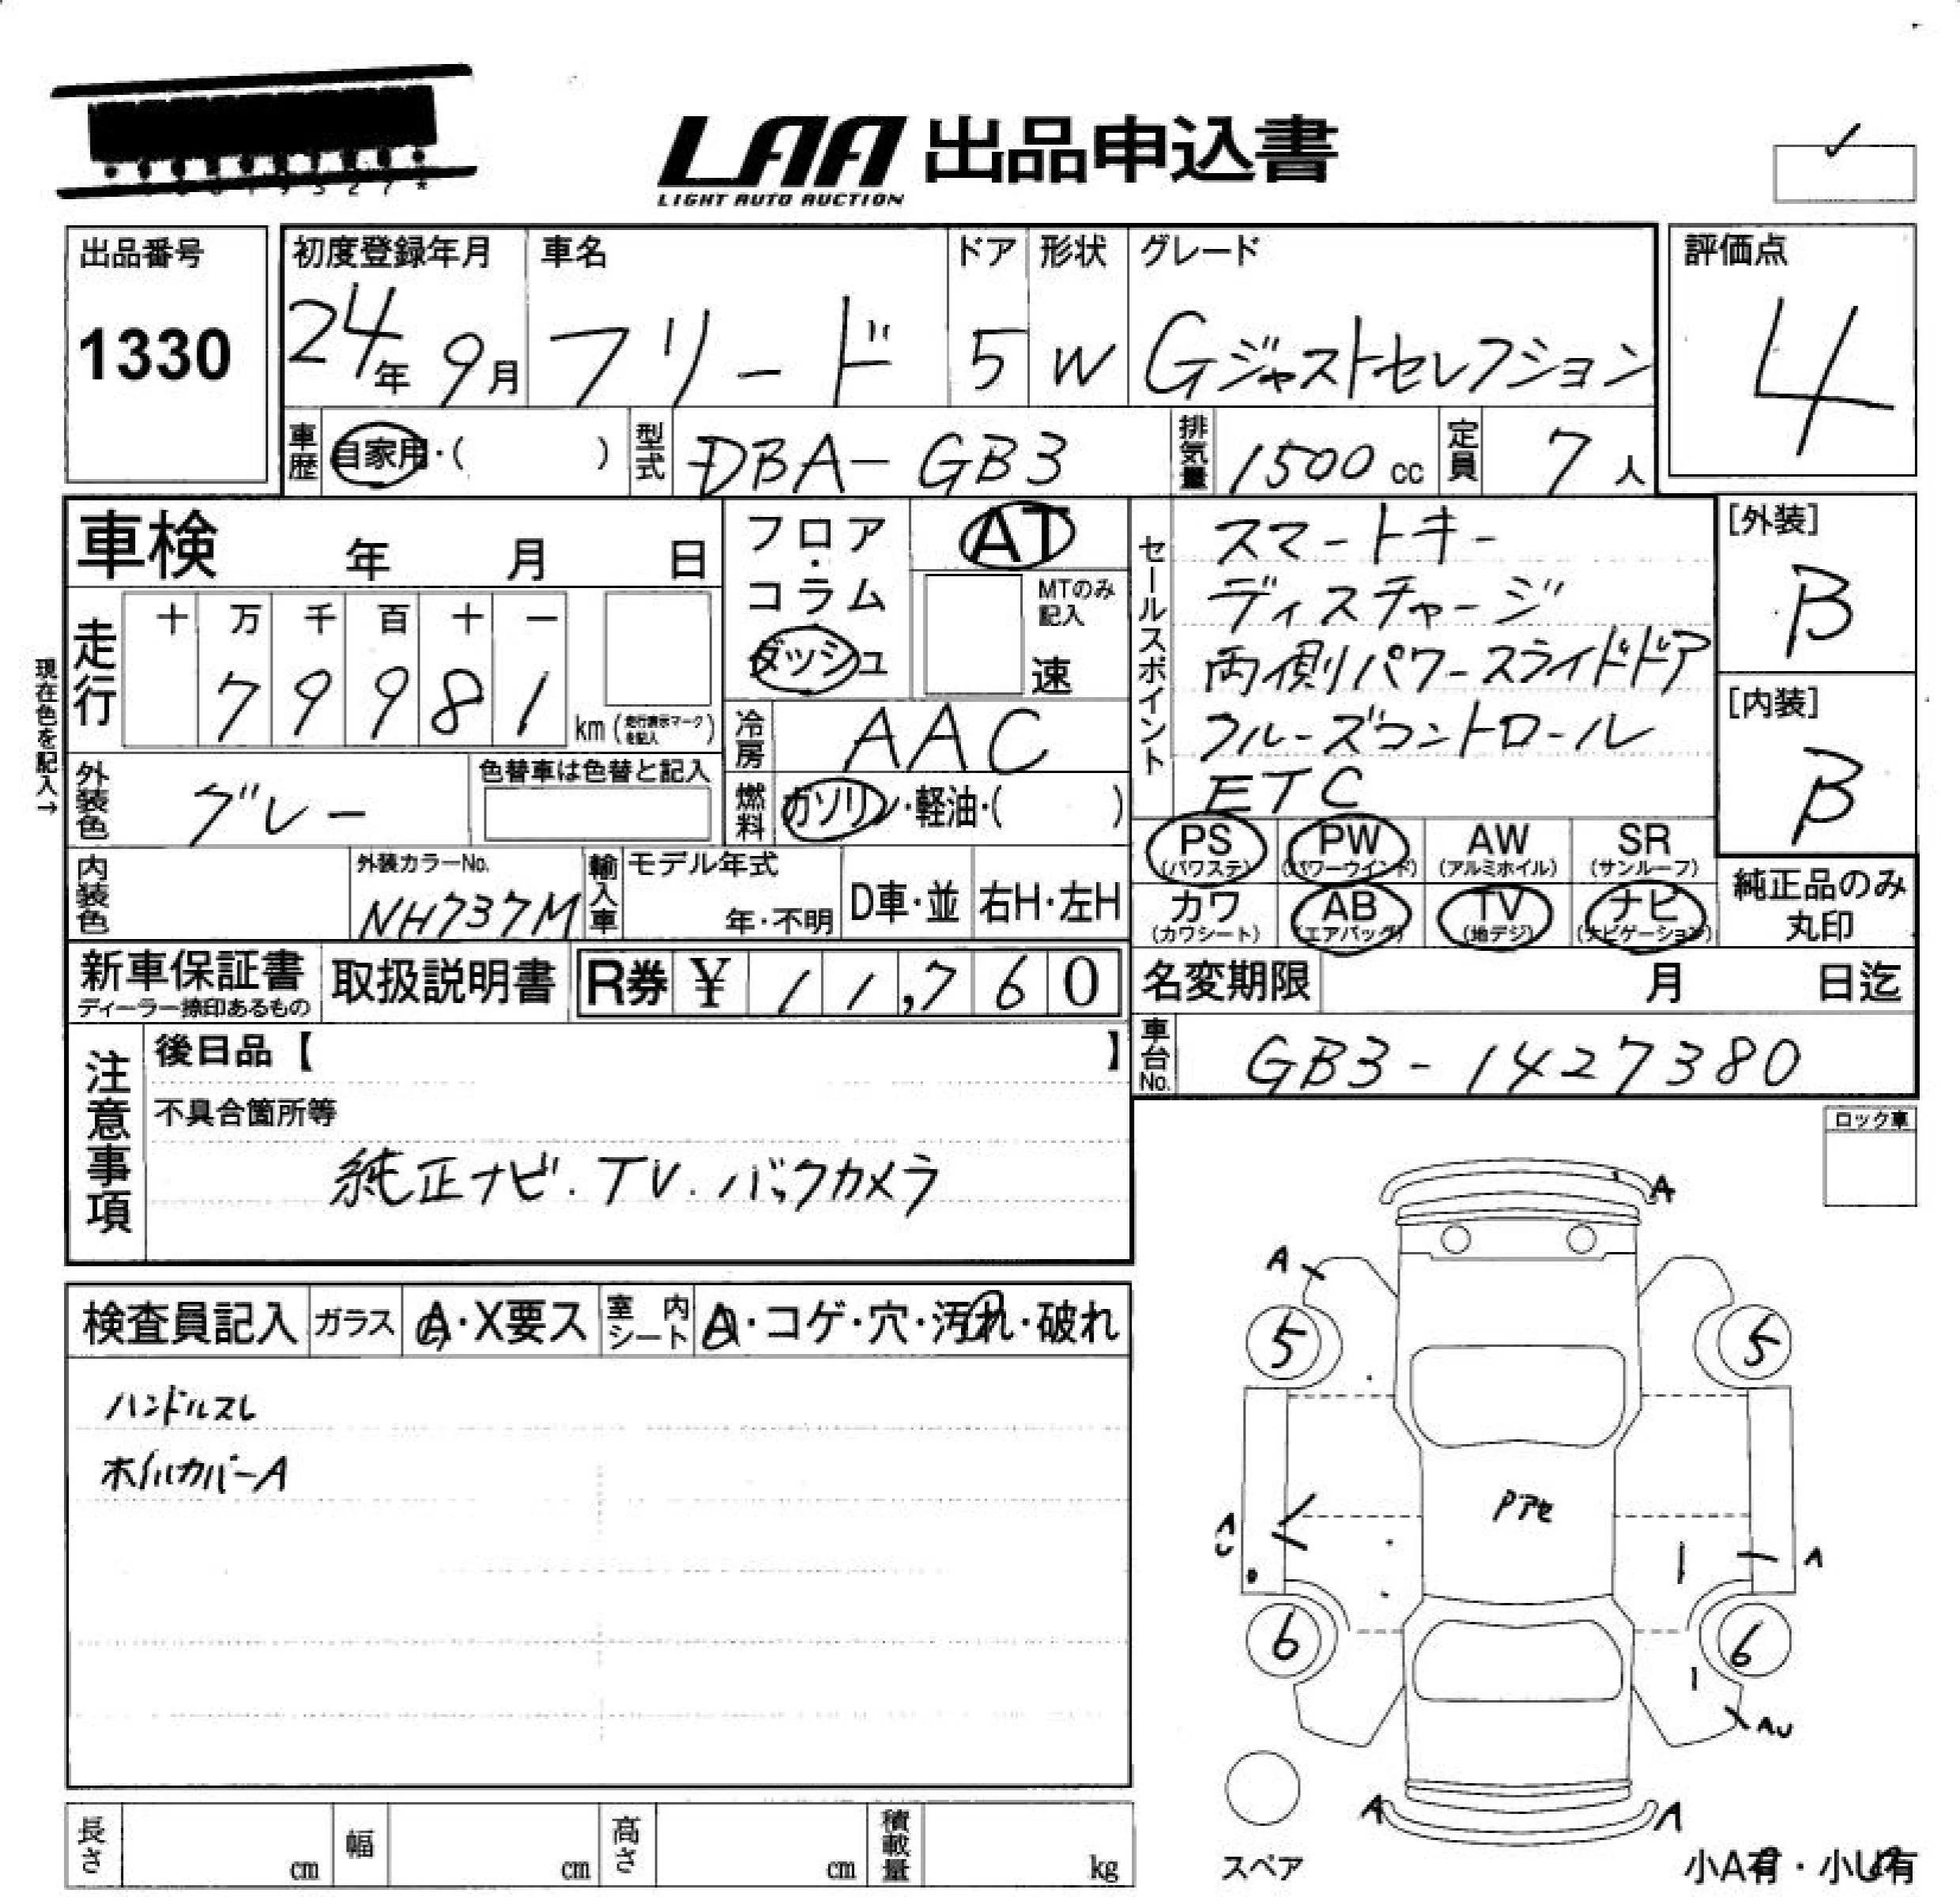 LAA 出品申込書
LIGHT AUTO AUCTION
出品番号
1330
初度登録年月
24年 9月
車名
フリード
ドア
5
形状
W
グレード
Gジャストセレクション
評価点
4
車歴 自家用・( )
型式 DBA-GB3
排気量 1500 cc
定員 7人
車検 年 月 日
フロア・コラム
ダッシュ
AT
MTのみ記入
速
セールスポイント
スマートキー
ディスチャージ
両側パワースライドドア
クルーズコントロール
ETC
[外装]
B
[内装]
B
現在色を記入→
走行
十 万 千 百 十 一
7 9 9 8 1
km (走行表示マークを記入)
冷房 AAC
外装色 グレー
色替車は色替と記入
燃料 ガソリン・軽油・( )
PS (パワステ)
PW (パワーウインド)
AW (アルミホイル)
SR (サンルーフ)
カワ (カワシート)
AB (エアバッグ)
TV (地デジ)
ナビ (ナビゲーション)
純正品のみ丸印
内装色
外装カラーNo.
NH737M
輸入車
モデル年式
年・不明
D車・並
右H・左H
新車保証書
ディーラー捺印あるもの
取扱説明書
R券 ¥ 11,760
名変期限 月 日迄
車台No. GB3-1427380
注意事項
後日品【 】
不具合箇所等
純正ナビ.TV.バックカメラ
ロック車
検査員記入
ガラス A・X要ス
室内シート A・コゲ・穴・汚れ・破れ
ハンドルスレ
ホイルカバーA
A
A
5
5
Pアセ
AU
A
6
6
AU
A
A
スペア
小A有・小U有
長さ cm
幅 cm
高さ cm
積載量 kg